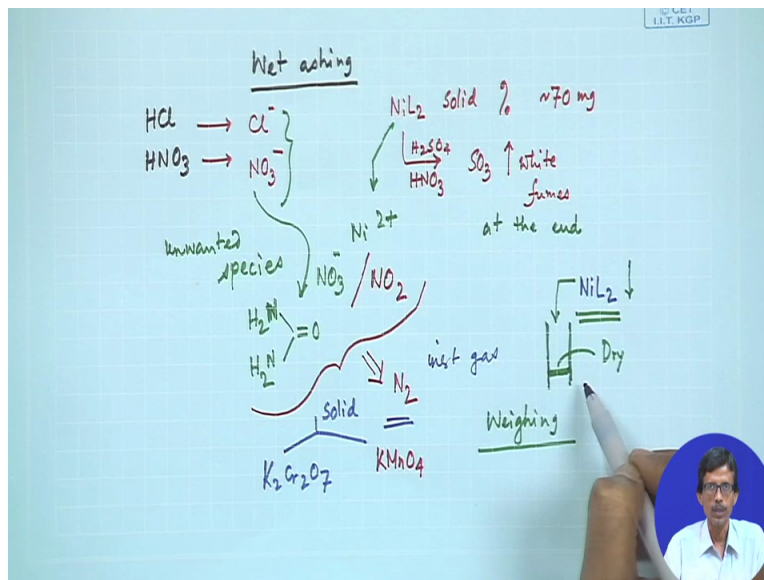 © CET
I.I.T. KGP
Wet ashing
HCl → Cl⁻
HNO3 → NO3⁻
NiL2 solid % ~70 mg
H2SO4
HNO3
SO3 ↑ white
fumes
at the end
Ni 2+
unwanted
species
NO3⁻ / NO2
H2N
=O
H2N
N2 inert gas
NiL2 ↓
Dry
Weighing
Solid
K2Cr2O7 KMnO4